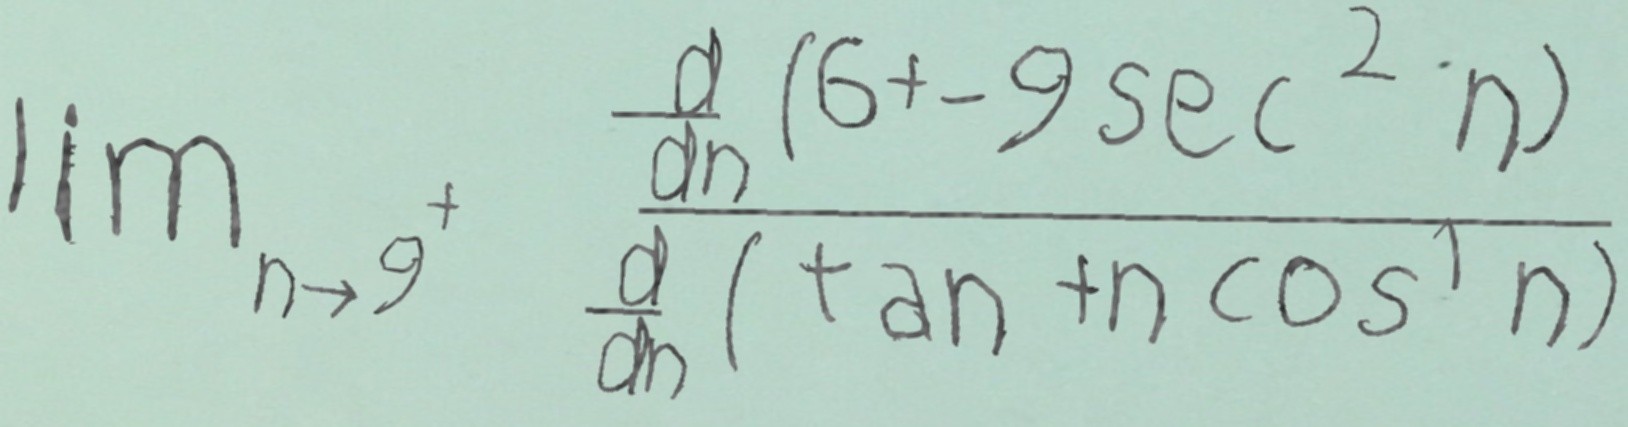 \lim_{n \to 9^+} \frac{\frac{d}{dn}(6+-9\sec^2 \cdot n)}{\frac{d}{dn}(\tan+n\cos^1 n)}